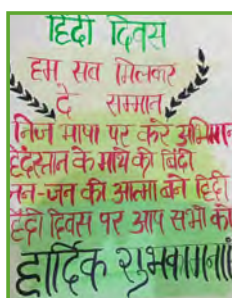 हिंदी दिवस
हम सब मिलकर
दे सम्मान
निज भाषा पर करे अभिमान
हिंदुस्तान के माथे की बिंदी
जन-जन की आत्मा बने हिंदी
हिंदी दिवस पर आप सभी को
हार्दिक शुभकामनाएं